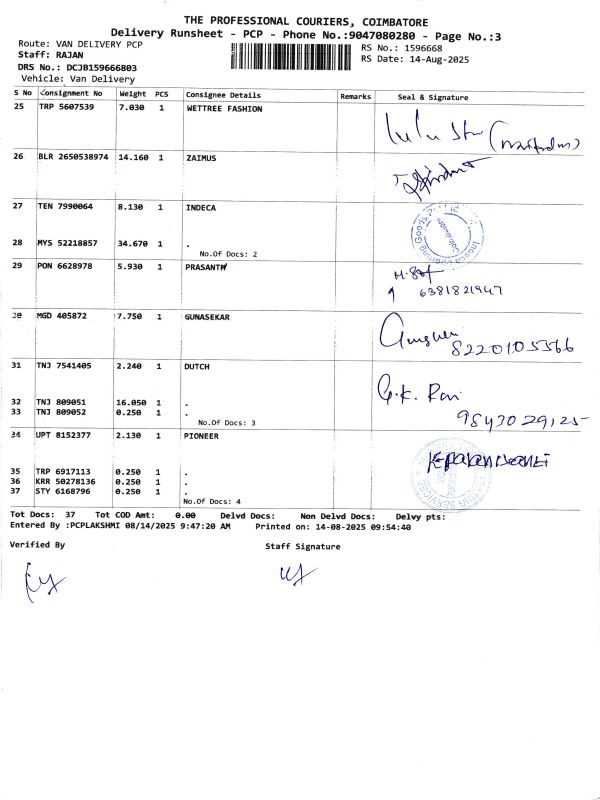 THE PROFESSIONAL COURIERS, COIMBATORE
Delivery Runsheet - PCP - Phone No.:9047080280 - Page No.:3
Route: VAN DELIVERY PCP
Staff: RAJAN
DRS No.: DCJB159666803
Vehicle: Van Delivery
RS No.: 1596668
RS Date: 14-Aug-2025
S No Consignment No Weight PCS Consignee Details Remarks Seal & Signature
25 TRP 5607539 7.030 1 WETTREE FASHION
26 BLR 2650538974 14.160 1 ZAIMUS
27 TEN 7990064 8.130 1 INDECA
28 MYS 52218857 34.670 1 .
No.Of Docs: 2
29 PON 6628978 5.930 1 PRASANTH
6381821947
30 MGD 405872 7.750 1 GUNASEKAR
8220105366
31 TNJ 7541405 2.240 1 DUTCH
G.K. Ravi
32 TNJ 809051 16.050 1 .
33 TNJ 809052 0.250 1 .
No.Of Docs: 3
9843029125
34 UPT 8152377 2.130 1 PIONEER
35 TRP 6917113 0.250 1 .
36 KRR 50278136 0.250 1 .
37 STY 6168796 0.250 1 .
No.Of Docs: 4
Tot Docs: 37 Tot COD Amt: 0.00 Delvd Docs: Non Delvd Docs: Delvy pts:
Entered By :PCPLAKSHMI 08/14/2025 9:47:20 AM Printed on: 14-08-2025 09:54:40
Verified By Staff Signature